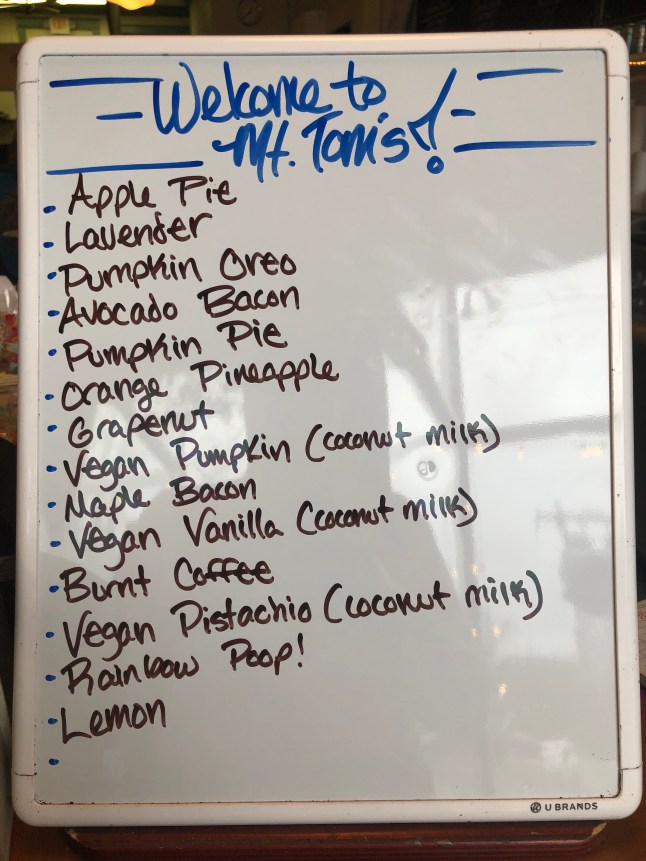 Welcome to
Mt. Tom's!
• Apple Pie
• Lavender
• Pumpkin Oreo
• Avocado Bacon
• Pumpkin Pie
• Orange Pineapple
• Grapenut
• Vegan Pumpkin (coconut milk)
• Maple Bacon
• Vegan Vanilla (coconut milk)
• Burnt Coffee
• Vegan Pistachio (coconut milk)
• Rainbow Poop!
• Lemon
•
U BRANDS